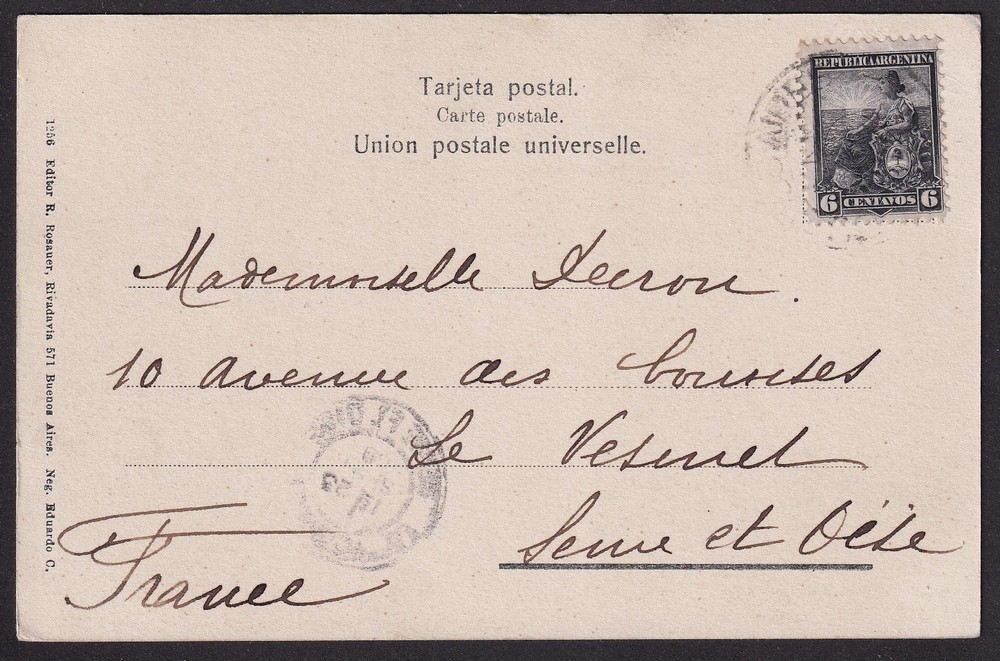 Tarjeta postal.
Carte postale.
Union postale universelle.
REPUBLICA ARGENTINA
6 CENTAVOS 6
Mademoiselle Lecron.
10 avenue des Courses
Le Vesinet
Seine et Oise
France
1256 Editor R. Rosauer, Rivadavia 571 Buenos Aires. Neg. Eduardo C.